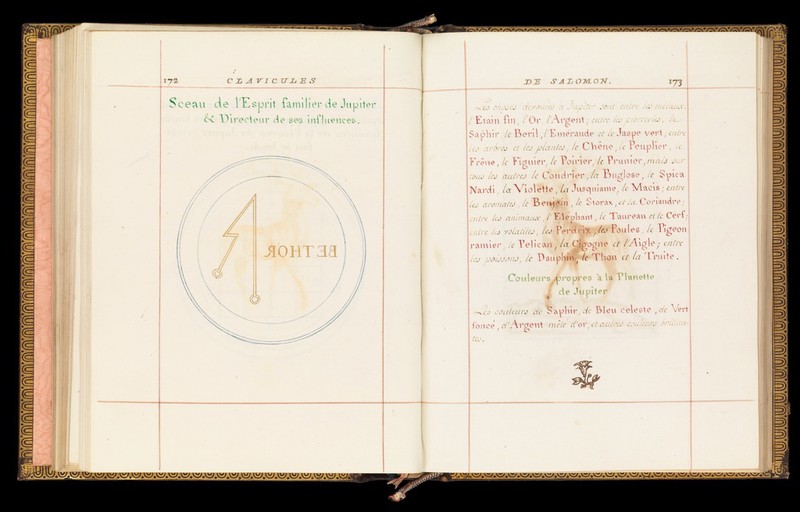 172 CLAVICULES
Sceau de l'Esprit familier de Jupiter
& Directeur de ses influences.
BETHOR
DE SALOMON. 173
Les choses dévouées à Jupiter sont entre les métaux:
l'Etain fin, l'Or, l'Argent; entre les pierreries, le
Saphir, le Beril, l'Emeraude et le Jaspe vert; entre
les arbres et les plantes, le Chêne, le Peuplier, le
Frêne, le Figuier, le Poirier, le Prunier, mais sur
tous les autres le Coudrier, la Buglose, le Spica
Nardi, la Violette, la Jusquiame, le Macis; entre
les aromates, le Benjoin, le Storax, et la Coriandre;
entre les animaux, l'Elephant, le Taureau et le Cerf;
entre les volatiles, les Perdrix, les Poules, le Pigeon
ramier, le Pelican, la Cigogne et l'Aigle; entre
les poissons, le Dauphin, le Thon et la Truite.
Couleurs propres à la Planette
de Jupiter
Les couleurs de Saphir, de Bleu celeste, de Vert
foncé, d'Argent mêlé d'or, et autres couleurs brillan-
tes.